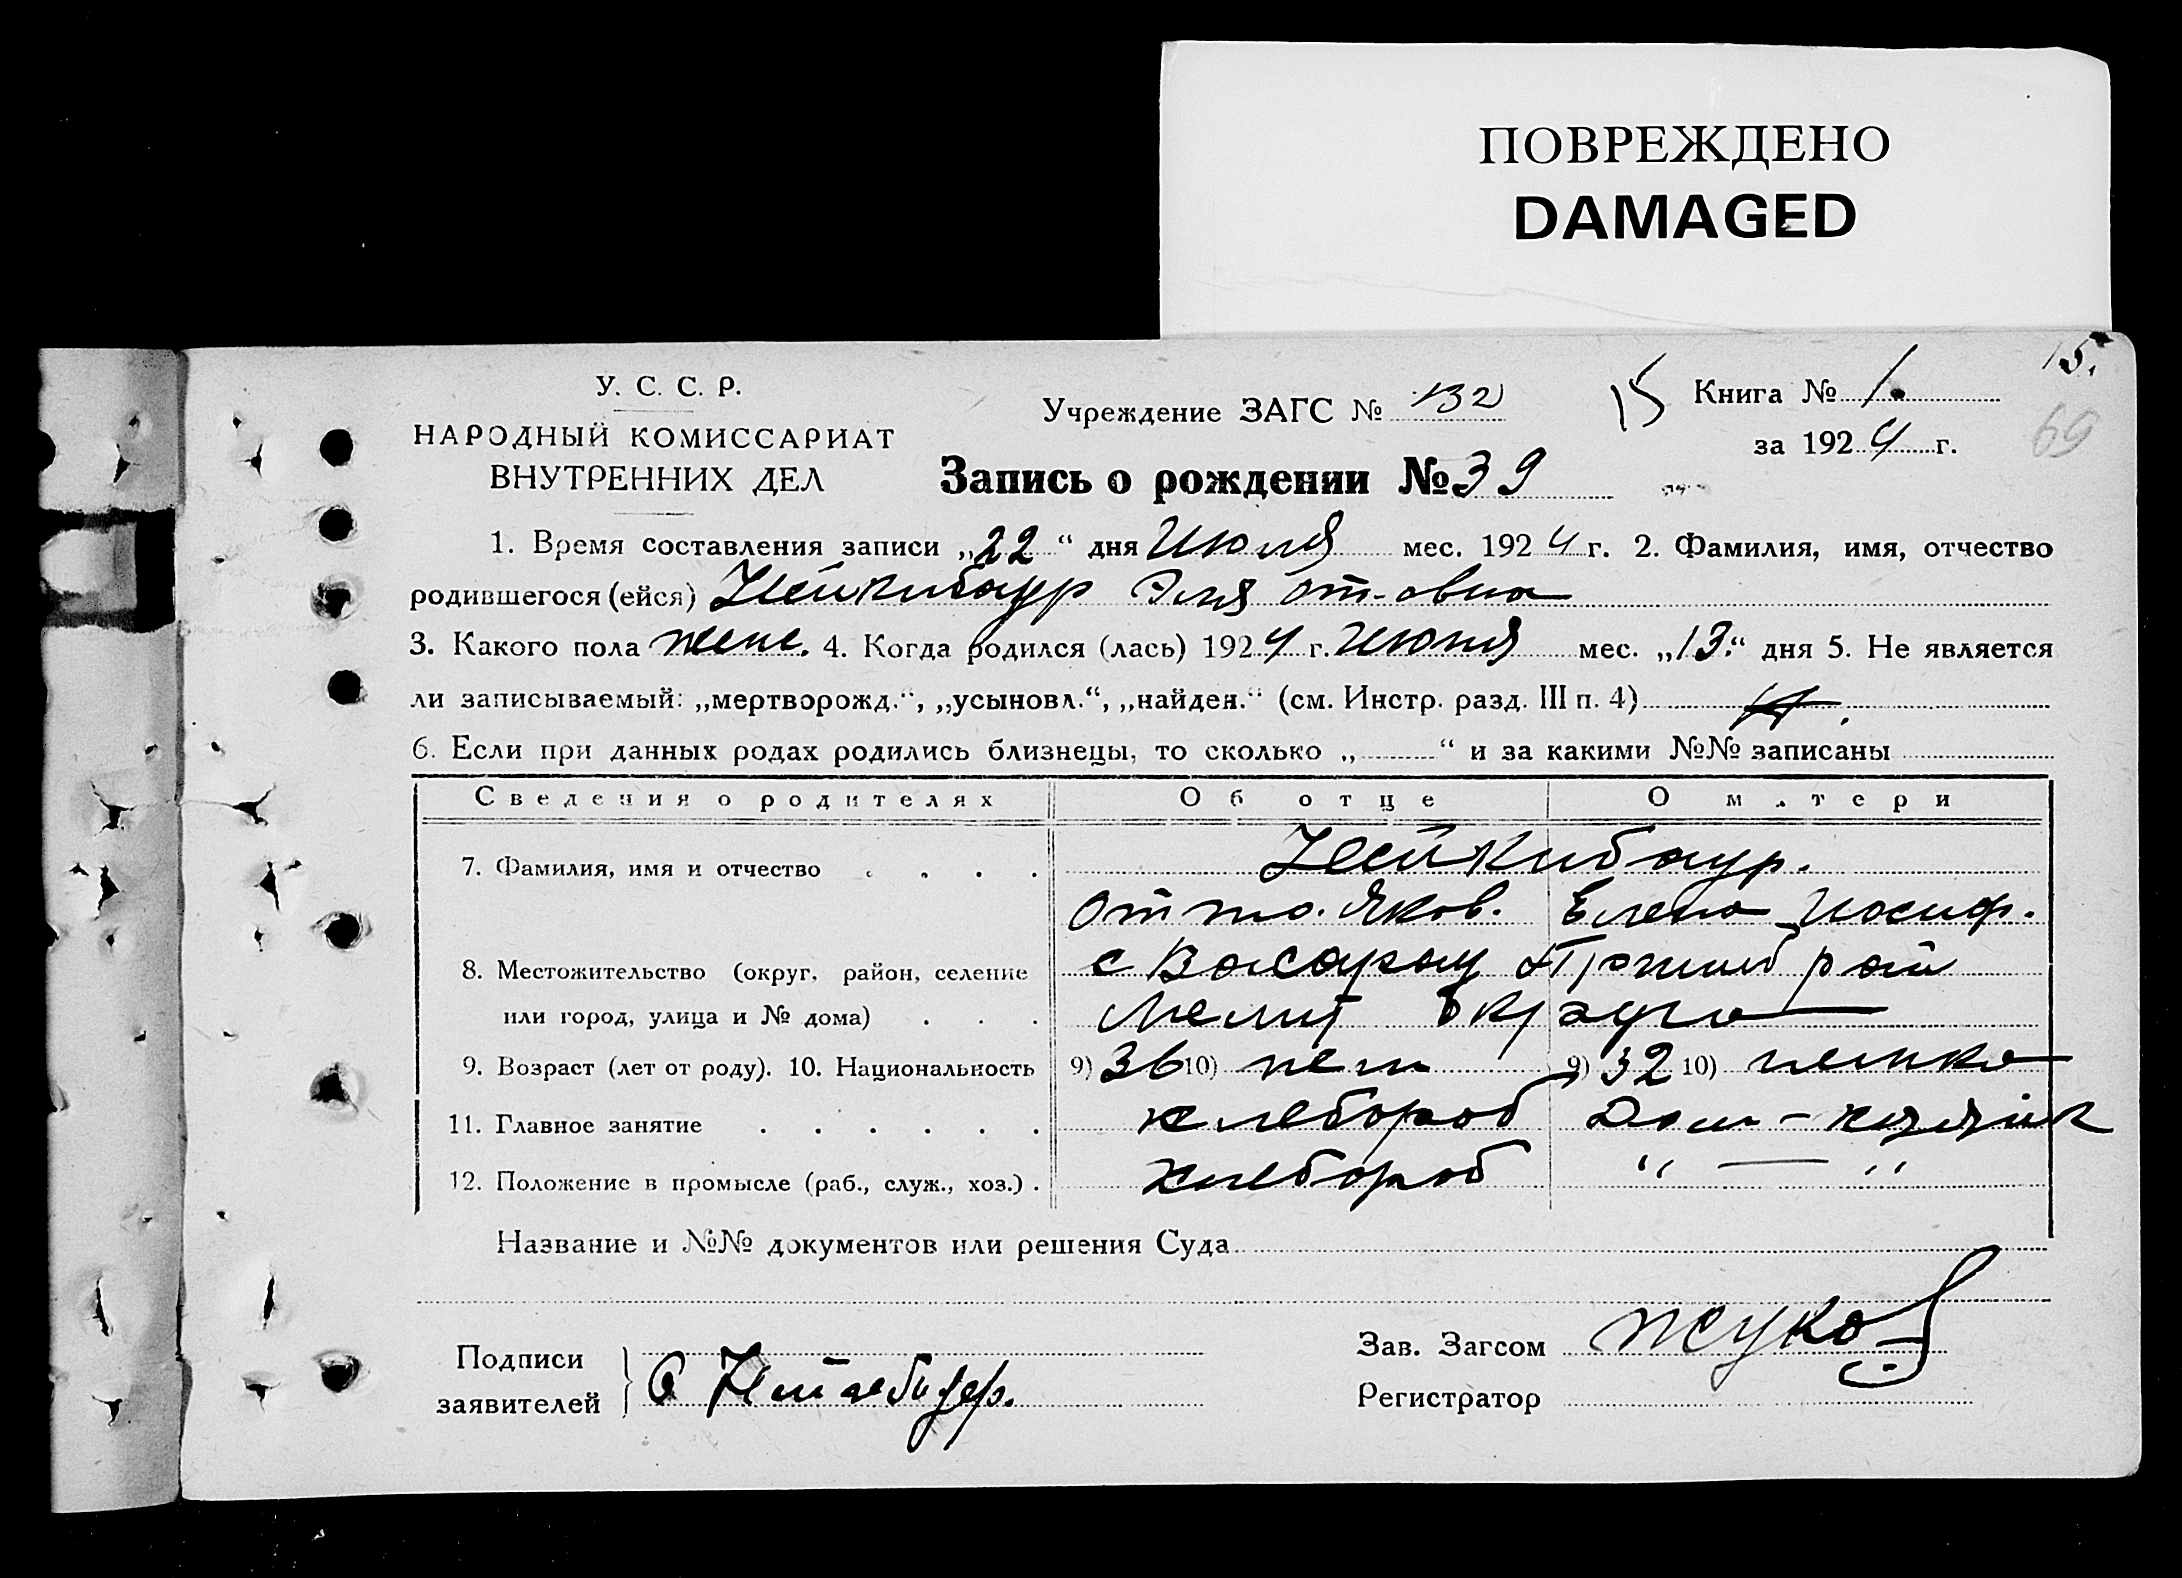 ПОВРЕЖДЕНО
DAMAGED
15.
У. С. С. Р.
НАРОДНЫЙ КОМИССАРИАТ
ВНУТРЕННИХ ДЕЛ
Учреждение ЗАГС № 132
15
Книга № 1.
за 1924 г.
69
Запись о рождении № 39
1. Время составления записи „22“ дня Июля мес. 1924 г. 2. Фамилия, имя, отчество
родившегося (ейся) Нейкибаур Эмя от-овна
3. Какого пола женс. 4. Когда родился (лась) 1924 г. Июня мес. „13.“ дня 5. Не является
ли записываемый: „мертворожд.“, „усыновл.“, „найден.“ (см. Инстр. разд. III п. 4)
6. Если при данных родах родились близнецы, то сколько „ “ и за какими №№ записаны
Сведения о родителях Об отце О матери
7. Фамилия, имя и отчество Нейкибаур.
Отто. Яков. Елена Иосиф.
8. Местожительство (округ, район, селение с Пришиб рай
или город, улица и № дома) Мелит округа
9. Возраст (лет от роду). 10. Национальность 9) 36 10) нем 9) 32 10) немка
11. Главное занятие хлебороб Дом-хозяйк
12. Положение в промысле (раб., служ., хоз.) хлебороб “ — “
Название и №№ документов или решения Суда
Подписи
заявителей О
Зав. Загсом Жуков
Регистратор